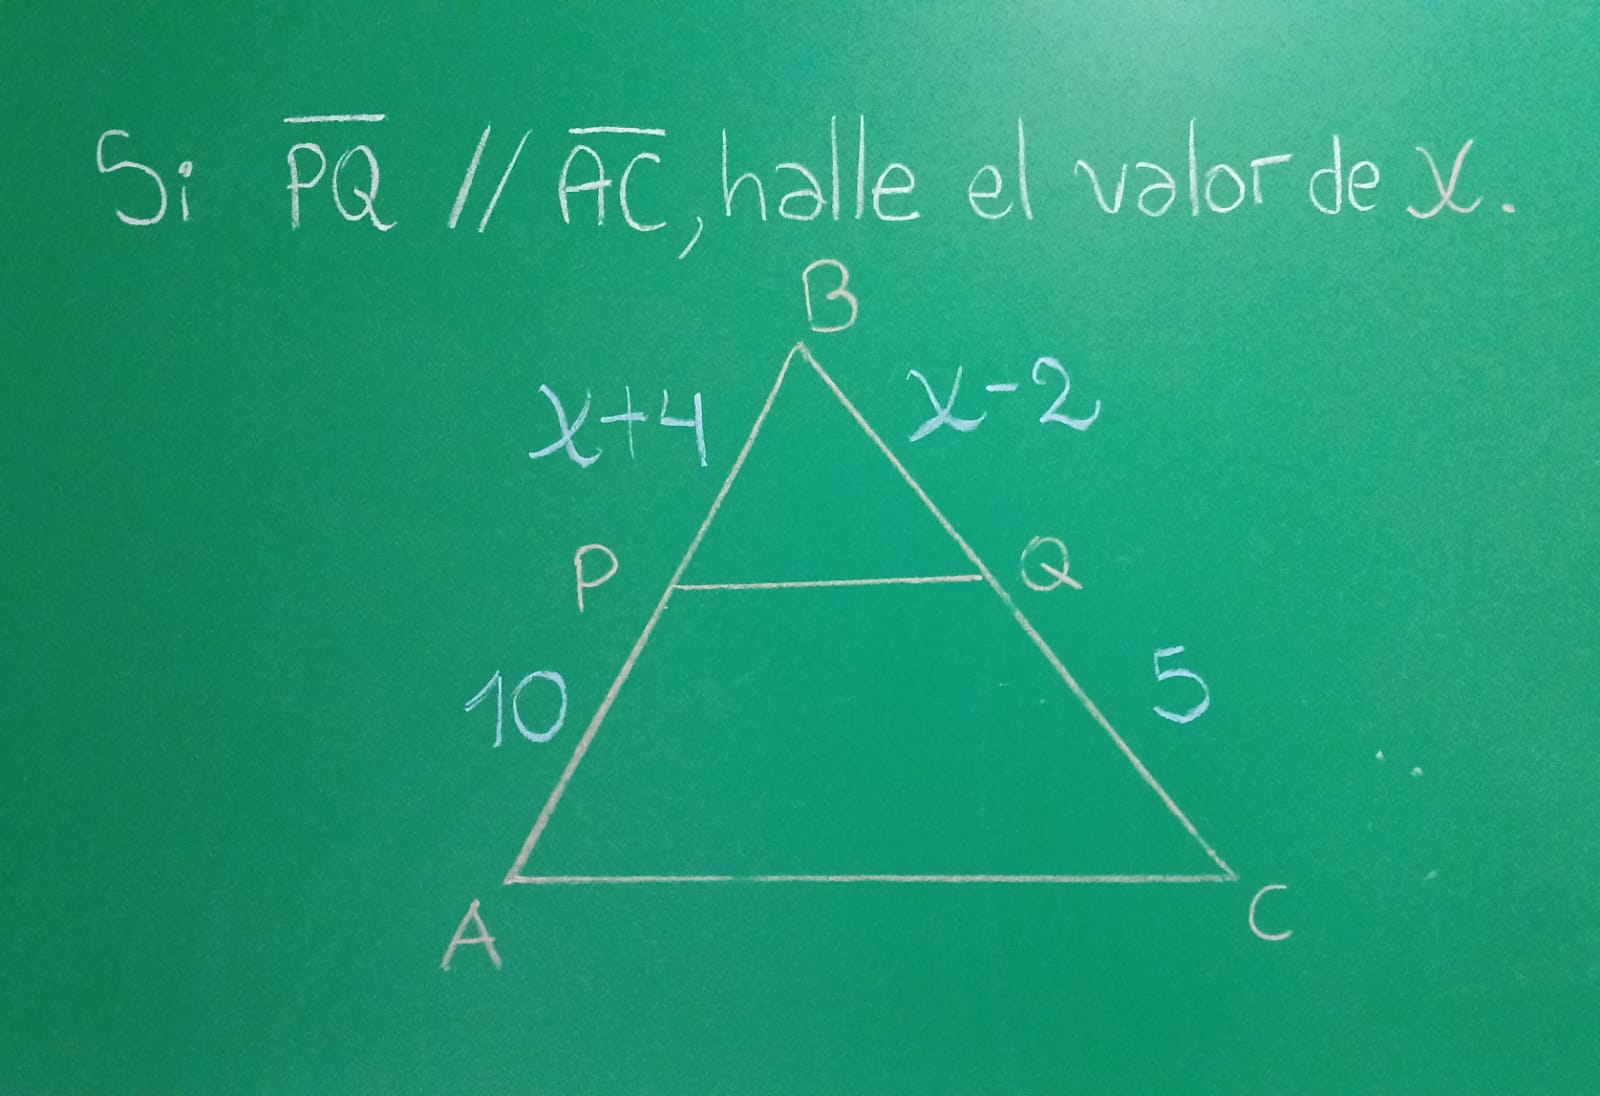 Si PQ // AC, halle el valor de x.
B
x+4 x-2
P Q
10 5
A C